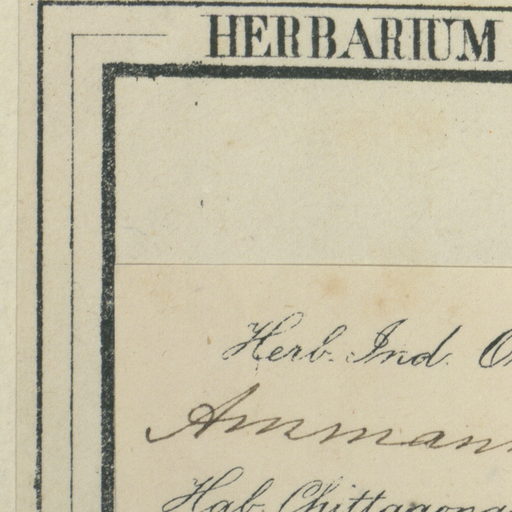 HERBARIUM
Herb. Ind. O
Ammann
Hab. Chittagong